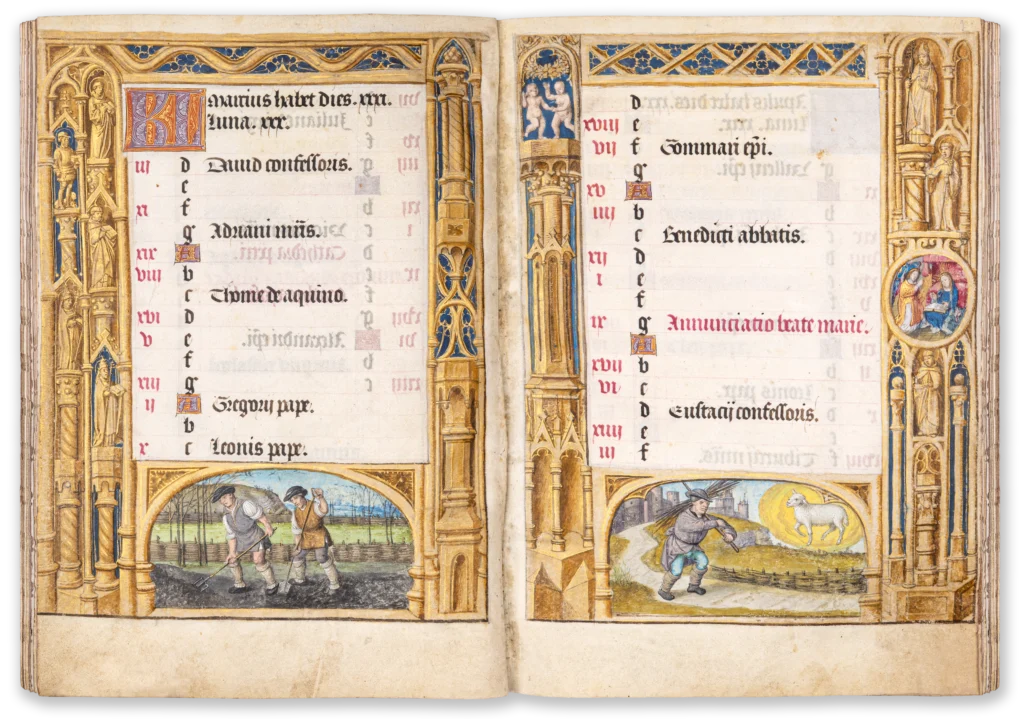 KL Martius habet dies. xxxi.
Luna. xxx.
iij d Dauid confessoris.
e
xj f
g Adriani mr̄is.
xix A
viij b
c Thome de aquino.
xvj d
v e
f
xiij g
ij A Gregorij pape.
b
x c Leonis pape.
d
xviij e
vij f Gommari ep̄i.
g
xv A
iiij b
c Benedicti abbatis.
xij d
j e
f
ix g Annunciatio beate marie.
A
xvij b
vj c
d Eustacij confessoris.
xiiij e
iij f